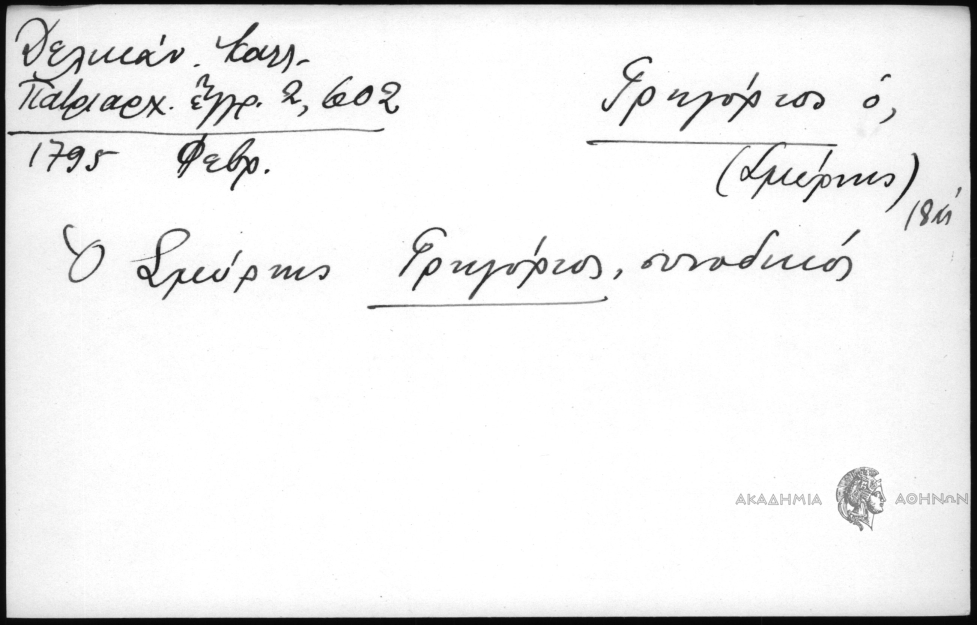 Δελικάν. Καλλ.
Πατριαρχ. ἔγγρ. 2, 602
1795 Φεβρ.
Γρηγόριος ὁ,
(Σμύρνης)
Ὁ Σμύρνης Γρηγόριος, συνοδικός
ΑΚΑΔΗΜΙΑ ΑΘΗΝΩΝ